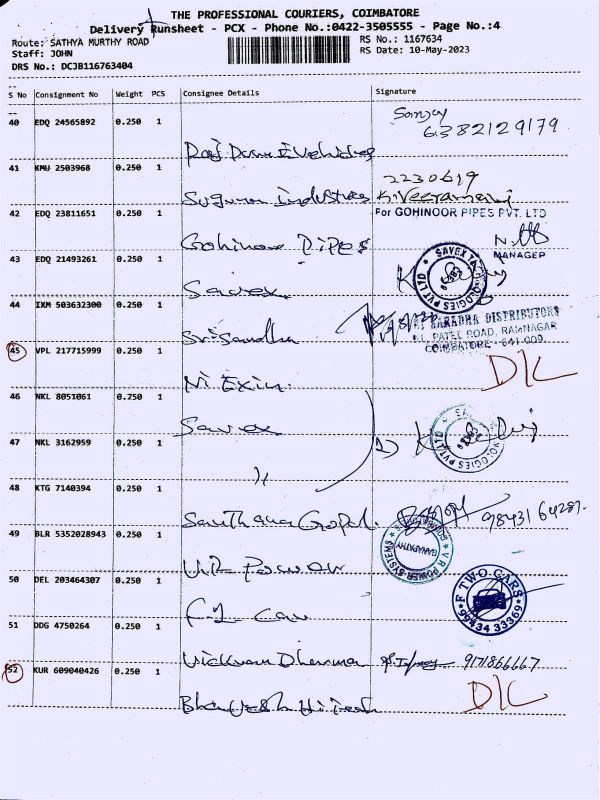 THE PROFESSIONAL COURIERS, COIMBATORE
Delivery Runsheet - PCX - Phone No.:0422-3505555 - Page No.:4
Route: SATHYA MURTHY ROAD
Staff: JOHN
DRS No.: DCJB116763404
RS No.: 1167634
RS Date: 10-May-2023
S No Consignment No Weight PCS Consignee Details Signature
40 EDQ 24565892 0.250 1 Sanjay
6382129179
41 KMU 2503968 0.250 1 2230619
Suguna Industries K.Veeramani
42 EDQ 23811651 0.250 1 For GOHINOOR PIPES PVT. LTD
Gohinoor Pipes
MANAGER
43 EDQ 21493261 0.250 1 SAVEX TECHNOLOGIES PVT LTD
Savex
44 IXM 503632300 0.250 1 SRI SARADHA DISTRIBUTORS
PATEL ROAD, RAMNAGAR
COIMBATORE - 641 009.
45 VPL 217715999 0.250 1 D/L
Ni Exin.
46 NKL 8051061 0.250 1
Savex
47 NKL 3162959 0.250 1
〃
48 KTG 7140394 0.250 1
Santhana Gopal. 9843164287.
49 BLR 5352028943 0.250 1 V R POWER SYSTEMS GANAPATHY
VR Power
50 DEL 203464307 0.250 1 F TWO CARS 99434 33369
F-2 Car
51 DDG 4750264 0.250 1
Vickram Dharma 9171866667
52 KUR 609040426 0.250 1 D/L
Bhavesh Hitesh